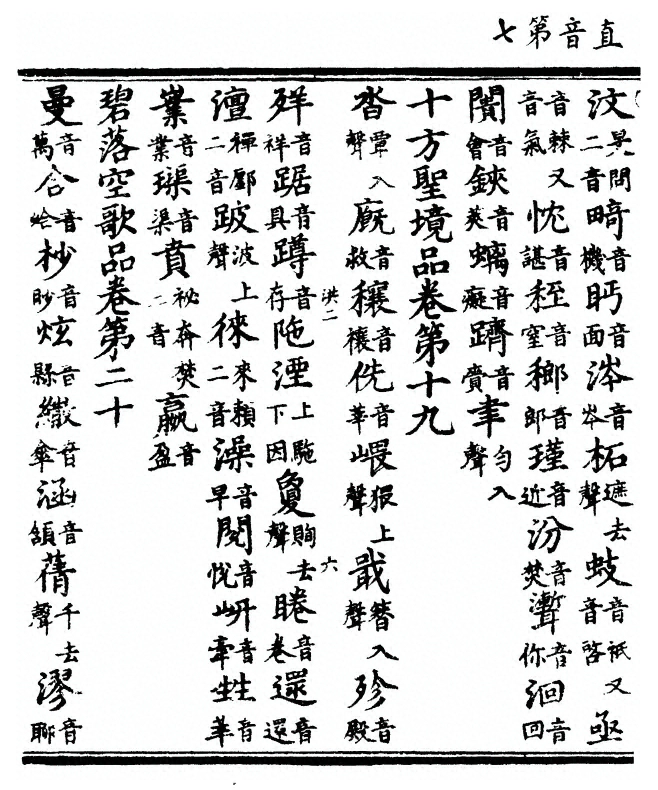 直音第七
汶問二音畸音機眄音面涔音岑柘遮去聲蚑音祇又音啓亟
音棘又音氣忱音諶秷音窒音郎瑾音近汾音焚音你洄音回
闠音會鋏音莢螭音癡躋音賫聿勻入聲
十方聖境品卷第十九
沓覃入聲廐音救穰音禳侁音莘㟴猥上聲戢簪入聲殄音殿
洪二 六
音祥踞音具蹲音存阤湮上阤下因夐去聲睠音卷還音還
澶禪鄽二音跛波上聲徠來賴二音澡音早閱音悅岍音牽甡音莘
音業璩音渠賁祕奔焚二音嬴音盈
碧落空歌品卷第二十
曼音萬合音蛤杪音眇炫音縣繖音傘涵音頷蒨千去聲漻音聊